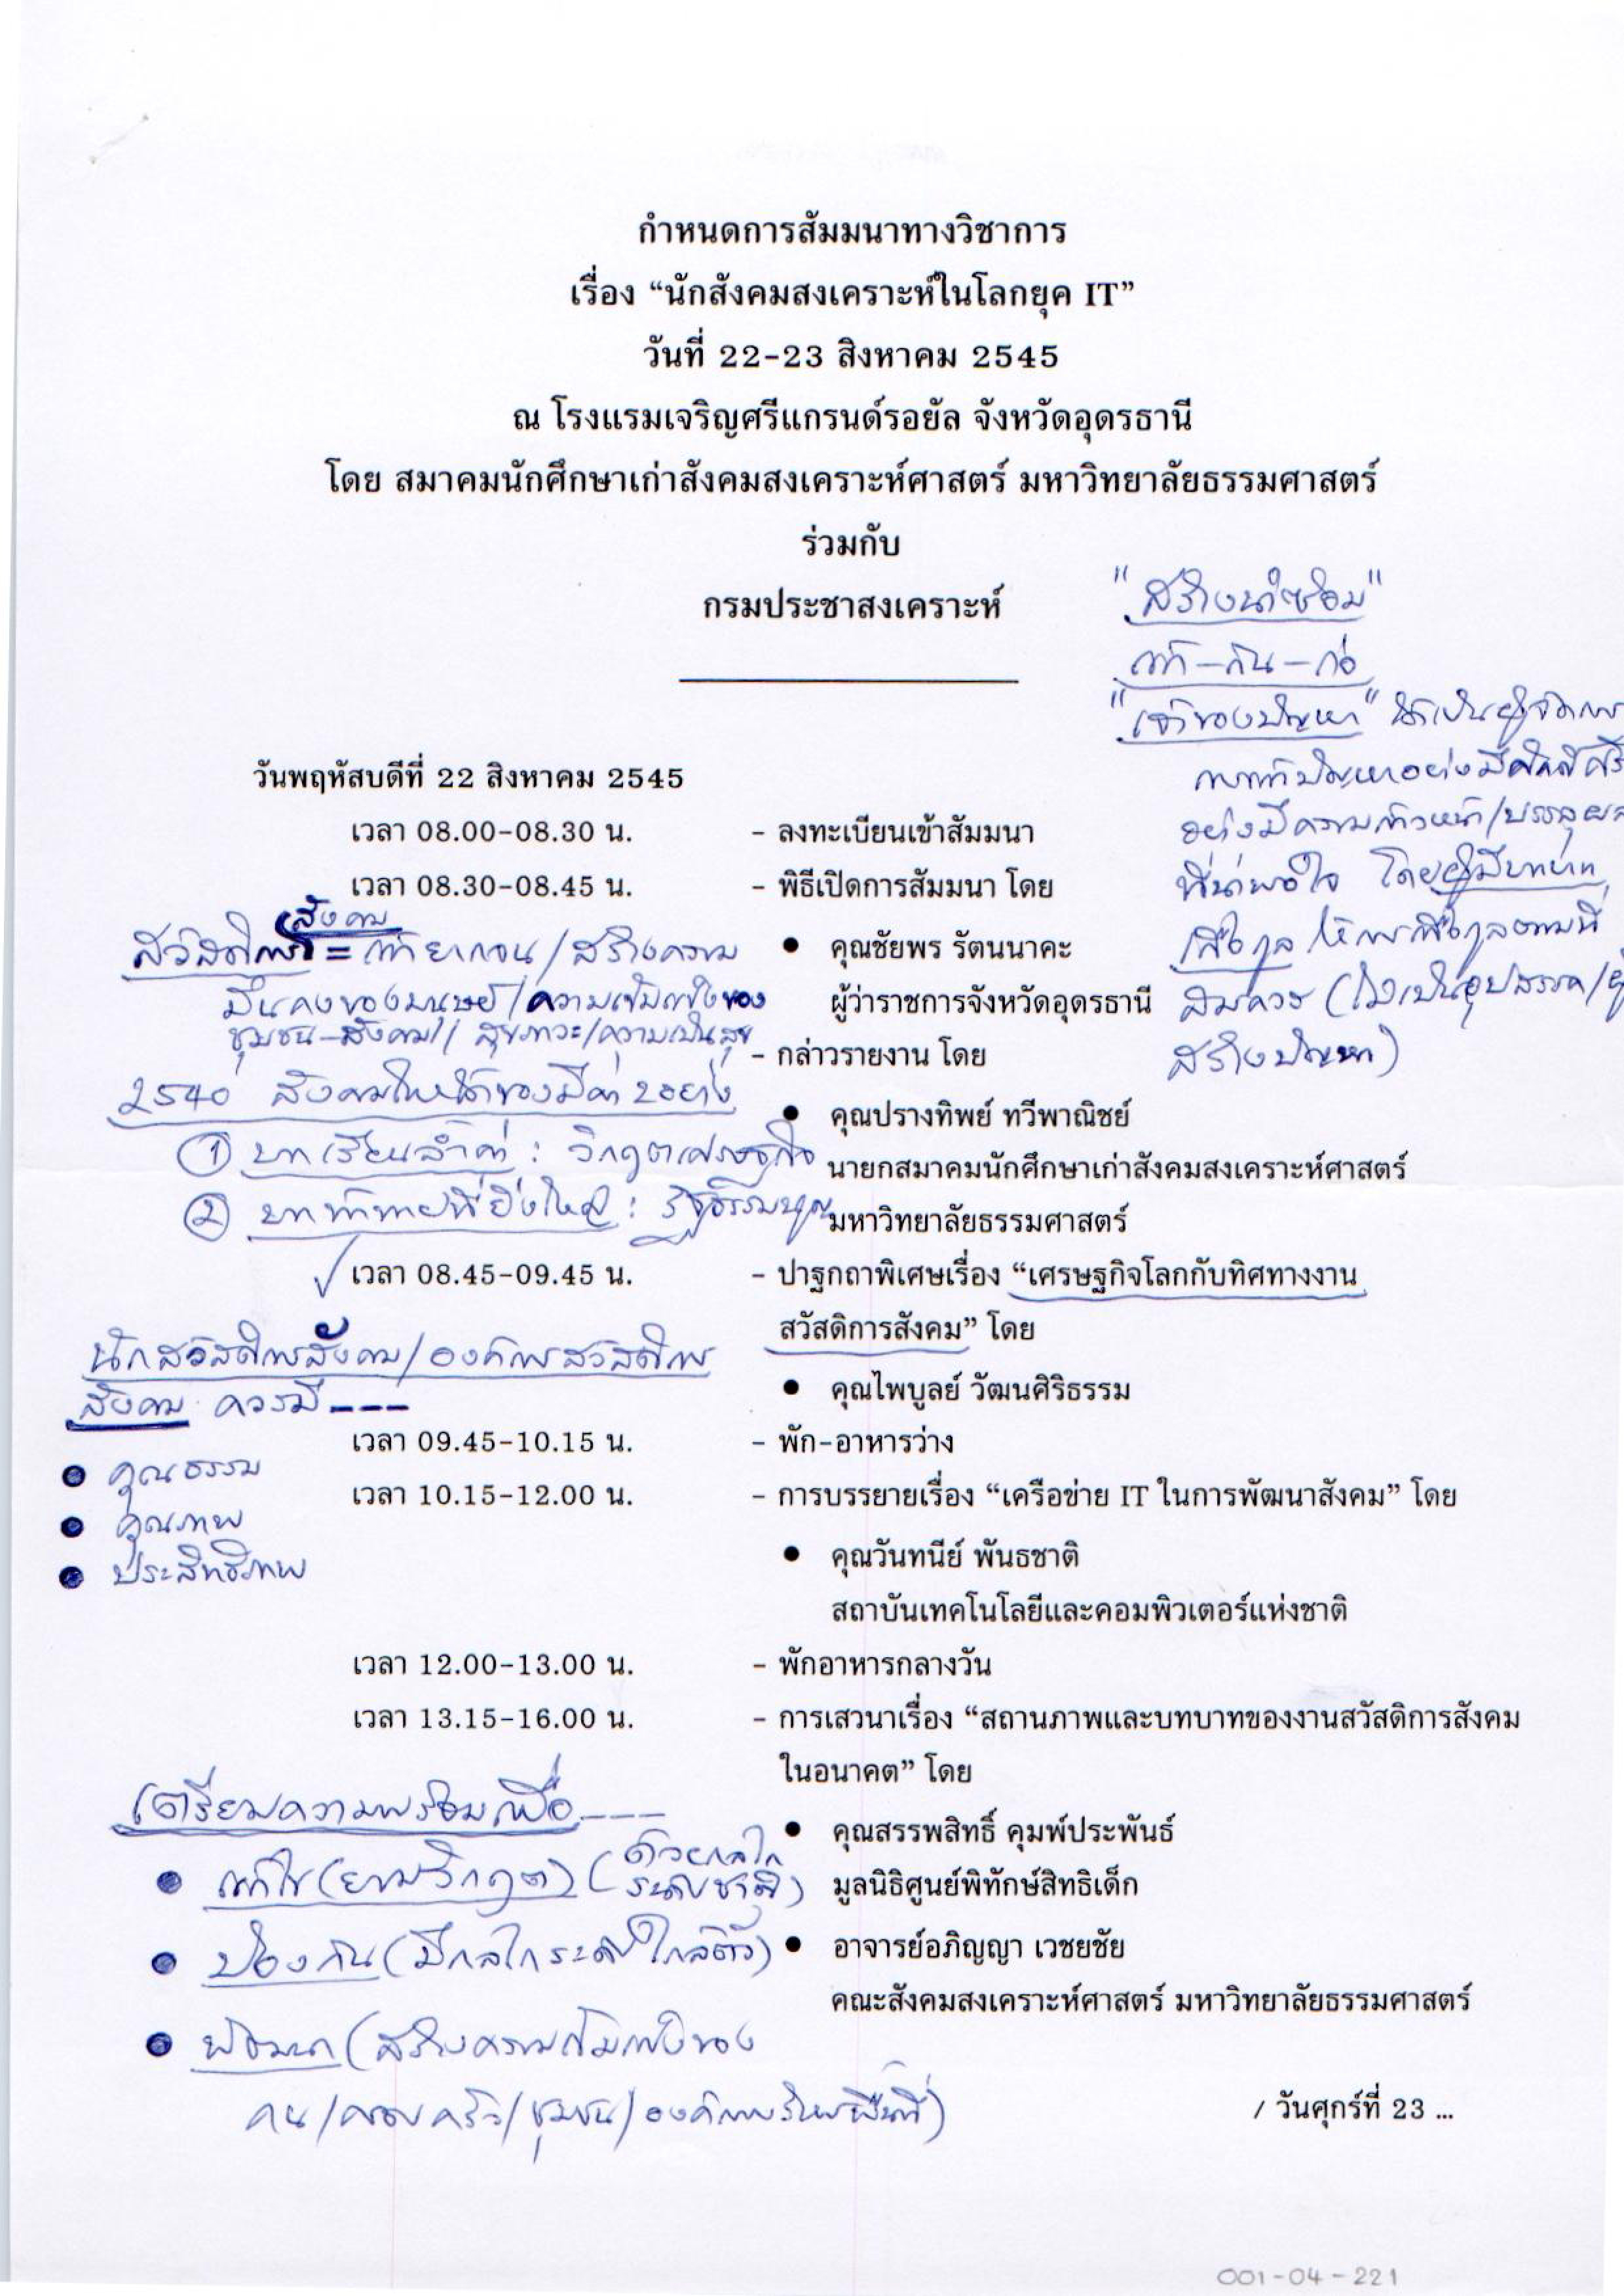 กำหนดการสัมมนาทางวิชาการ
เรื่อง “นักสังคมสงเคราะห์ในโลกยุค IT”
วันที่ 22-23 สิงหาคม 2545
ณ โรงแรมเจริญศรีแกรนด์รอยัล จังหวัดอุดรธานี
โดย สมาคมนักศึกษาเก่าสังคมสงเคราะห์ศาสตร์ มหาวิทยาลัยธรรมศาสตร์
ร่วมกับ
กรมประชาสงเคราะห์
"สร้างนำซ่อม"
แก้-กัน-ก่อ
"เจ้าของปัญหา" ให้เป็นผู้จัดการ
การแก้ปัญหาอย่างมีศักดิ์ศรี
อย่างมีความก้าวหน้า/บรรลุผล
ที่น่าพอใจ โดยผู้มีบทบาท
เกื้อกูล ให้การเกื้อกูลตามที่
สมควร (ไม่เป็นอุปสรรค/
สร้างปัญหา)
วันพฤหัสบดีที่ 22 สิงหาคม 2545
เวลา 08.00-08.30 น. - ลงทะเบียนเข้าสัมมนา
เวลา 08.30-08.45 น. - พิธีเปิดการสัมมนา โดย
• คุณชัยพร รัตนนาคะ
ผู้ว่าราชการจังหวัดอุดรธานี
- กล่าวรายงาน โดย
• คุณปรางทิพย์ ทวีพาณิชย์
นายกสมาคมนักศึกษาเก่าสังคมสงเคราะห์ศาสตร์
มหาวิทยาลัยธรรมศาสตร์
สังคม
สวัสดิการ = แก้ยากจน/สร้างความ
มั่นคงของมนุษย์/ความเข้มแข็งของ
ชุมชน-สังคม// สุขภาวะ/ความเป็นสุข
2540 สังคมไทยได้ของมีค่า 2 อย่าง
① บทเรียนล้ำค่า : วิกฤตเศรษฐกิจ
② บทท้าทายที่ยิ่งใหญ่ : รัฐธรรมนูญ
เวลา 08.45-09.45 น. - ปาฐกถาพิเศษเรื่อง “เศรษฐกิจโลกกับทิศทางงาน
สวัสดิการสังคม” โดย
• คุณไพบูลย์ วัฒนศิริธรรม
นักสวัสดิการสังคม/องค์การสวัสดิการ
สังคม ควรมี ---
• คุณธรรม
• คุณภาพ
• ประสิทธิภาพ
เวลา 09.45-10.15 น. - พัก-อาหารว่าง
เวลา 10.15-12.00 น. - การบรรยายเรื่อง “เครือข่าย IT ในการพัฒนาสังคม” โดย
• คุณวันทนีย์ พันธชาติ
สถาบันเทคโนโลยีและคอมพิวเตอร์แห่งชาติ
เวลา 12.00-13.00 น. - พักอาหารกลางวัน
เวลา 13.15-16.00 น. - การเสวนาเรื่อง “สถานภาพและบทบาทของงานสวัสดิการสังคม
ในอนาคต” โดย
• คุณสรรพสิทธิ์ คุมพ์ประพันธ์
มูลนิธิศูนย์พิทักษ์สิทธิเด็ก
• อาจารย์อภิญญา เวชยชัย
คณะสังคมสงเคราะห์ศาสตร์ มหาวิทยาลัยธรรมศาสตร์
เตรียมความพร้อมเพื่อ ---
• แก้ไข (ยามวิกฤต) (ด้วยกลไก
ระดับชาติ)
• ป้องกัน (มีกลไกระดับใกล้ตัว)
• พัฒนา (สร้างความเข้มแข็งของ
คน/ครอบครัว/ชุมชน/องค์กรในพื้นที่)
/ วันศุกร์ที่ 23 ...
001-04-221